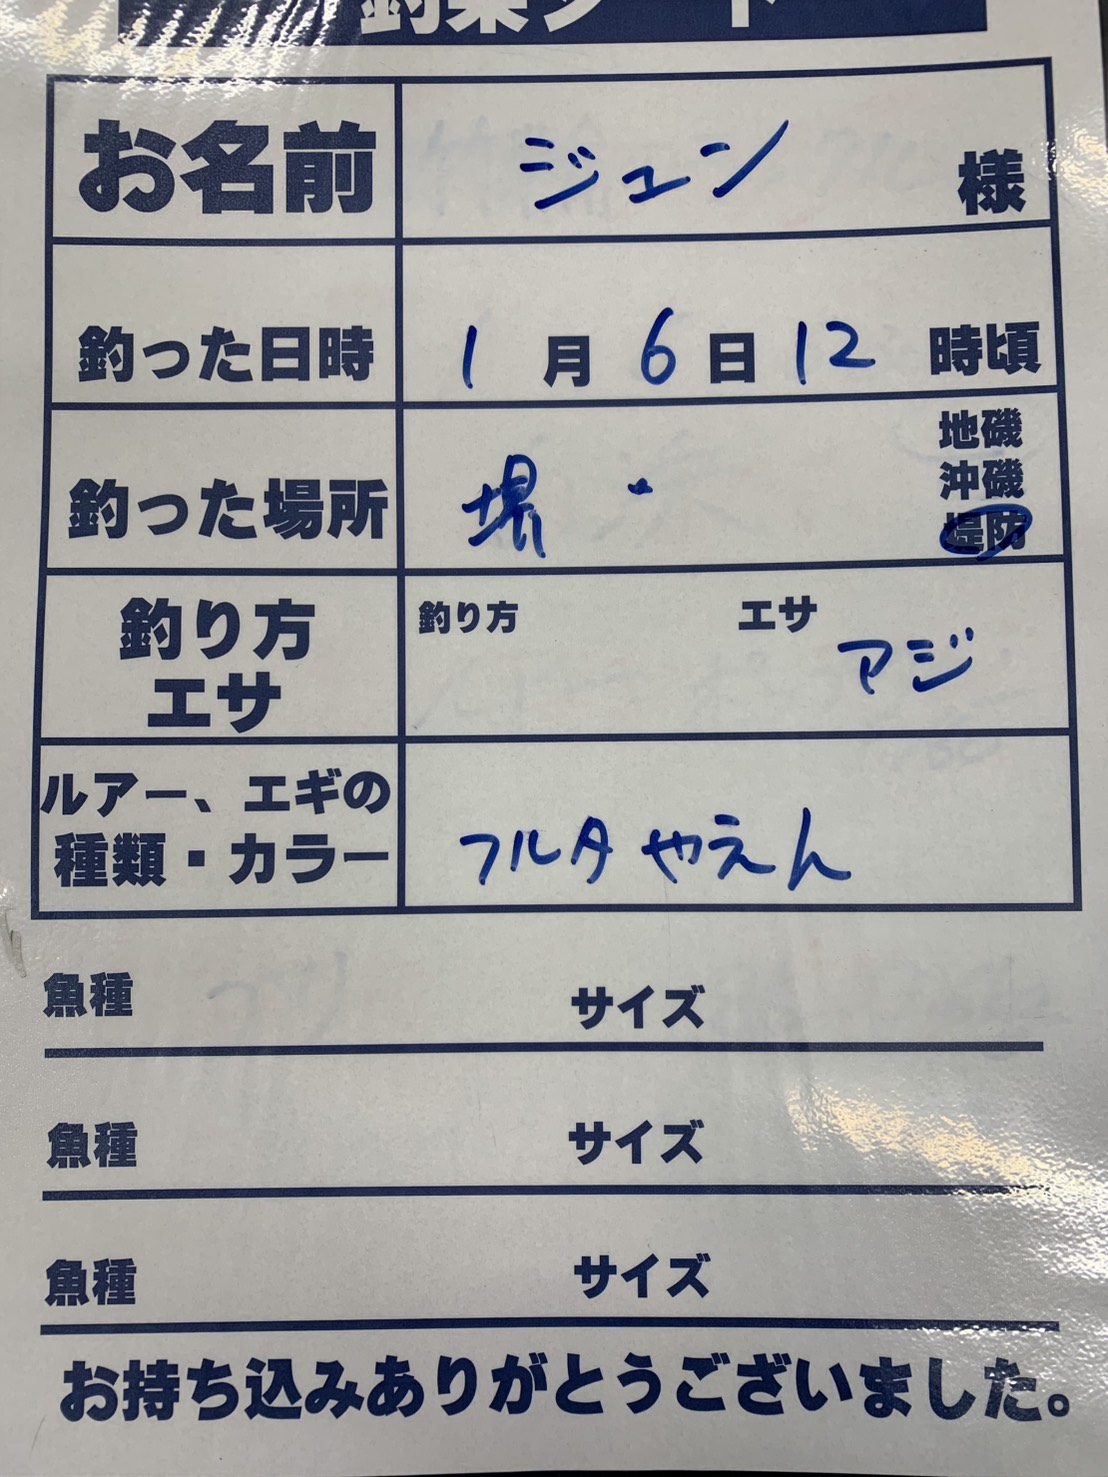 釣果シート
お名前 ジュン 様
釣った日時 1月6日12時頃
釣った場所 堺 地磯
沖磯
堤防
釣り方 エサ
釣り方 エサ アジ
ルアー、エギの
種類・カラー フルタやえん
魚種 サイズ
魚種 サイズ
魚種 サイズ
お持ち込みありがとうございました。